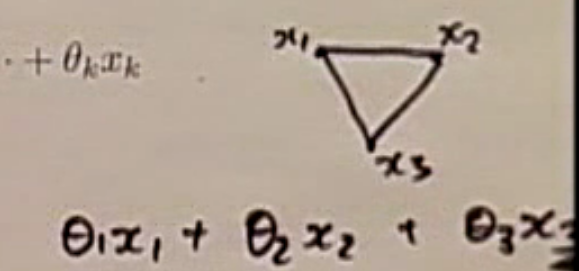 · + θₖxₖ
x₁ x₂
x₃
θ₁x₁ + θ₂x₂ + θ₃x